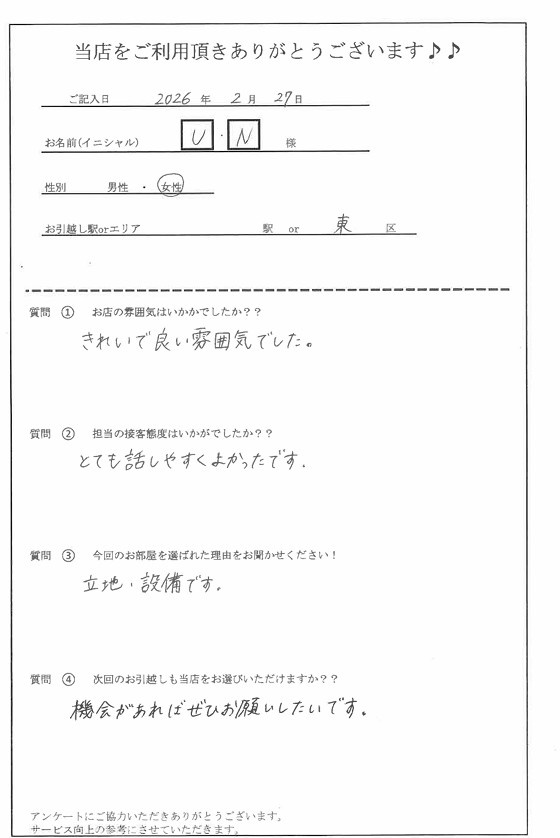 当店をご利用頂きありがとうございます♪♪
ご記入日 2026 年 2 月 27 日
お名前(イニシャル) U ・ N 様
性別 男性 ・ 女性
お引越し駅orエリア 駅 or 東 区
質問 ① お店の雰囲気はいかかでしたか？？
きれいで良い雰囲気でした。
質問 ② 担当の接客態度はいかがでしたか？？
とても話しやすくよかったです.
質問 ③ 今回のお部屋を選ばれた理由をお聞かせください！
立地・設備です。
質問 ④ 次回のお引越しも当店をお選びいただけますか？？
機会があればぜひお願いしたいです。
アンケートにご協力いただきありがとうございます。
サービス向上の参考にさせていただきます。